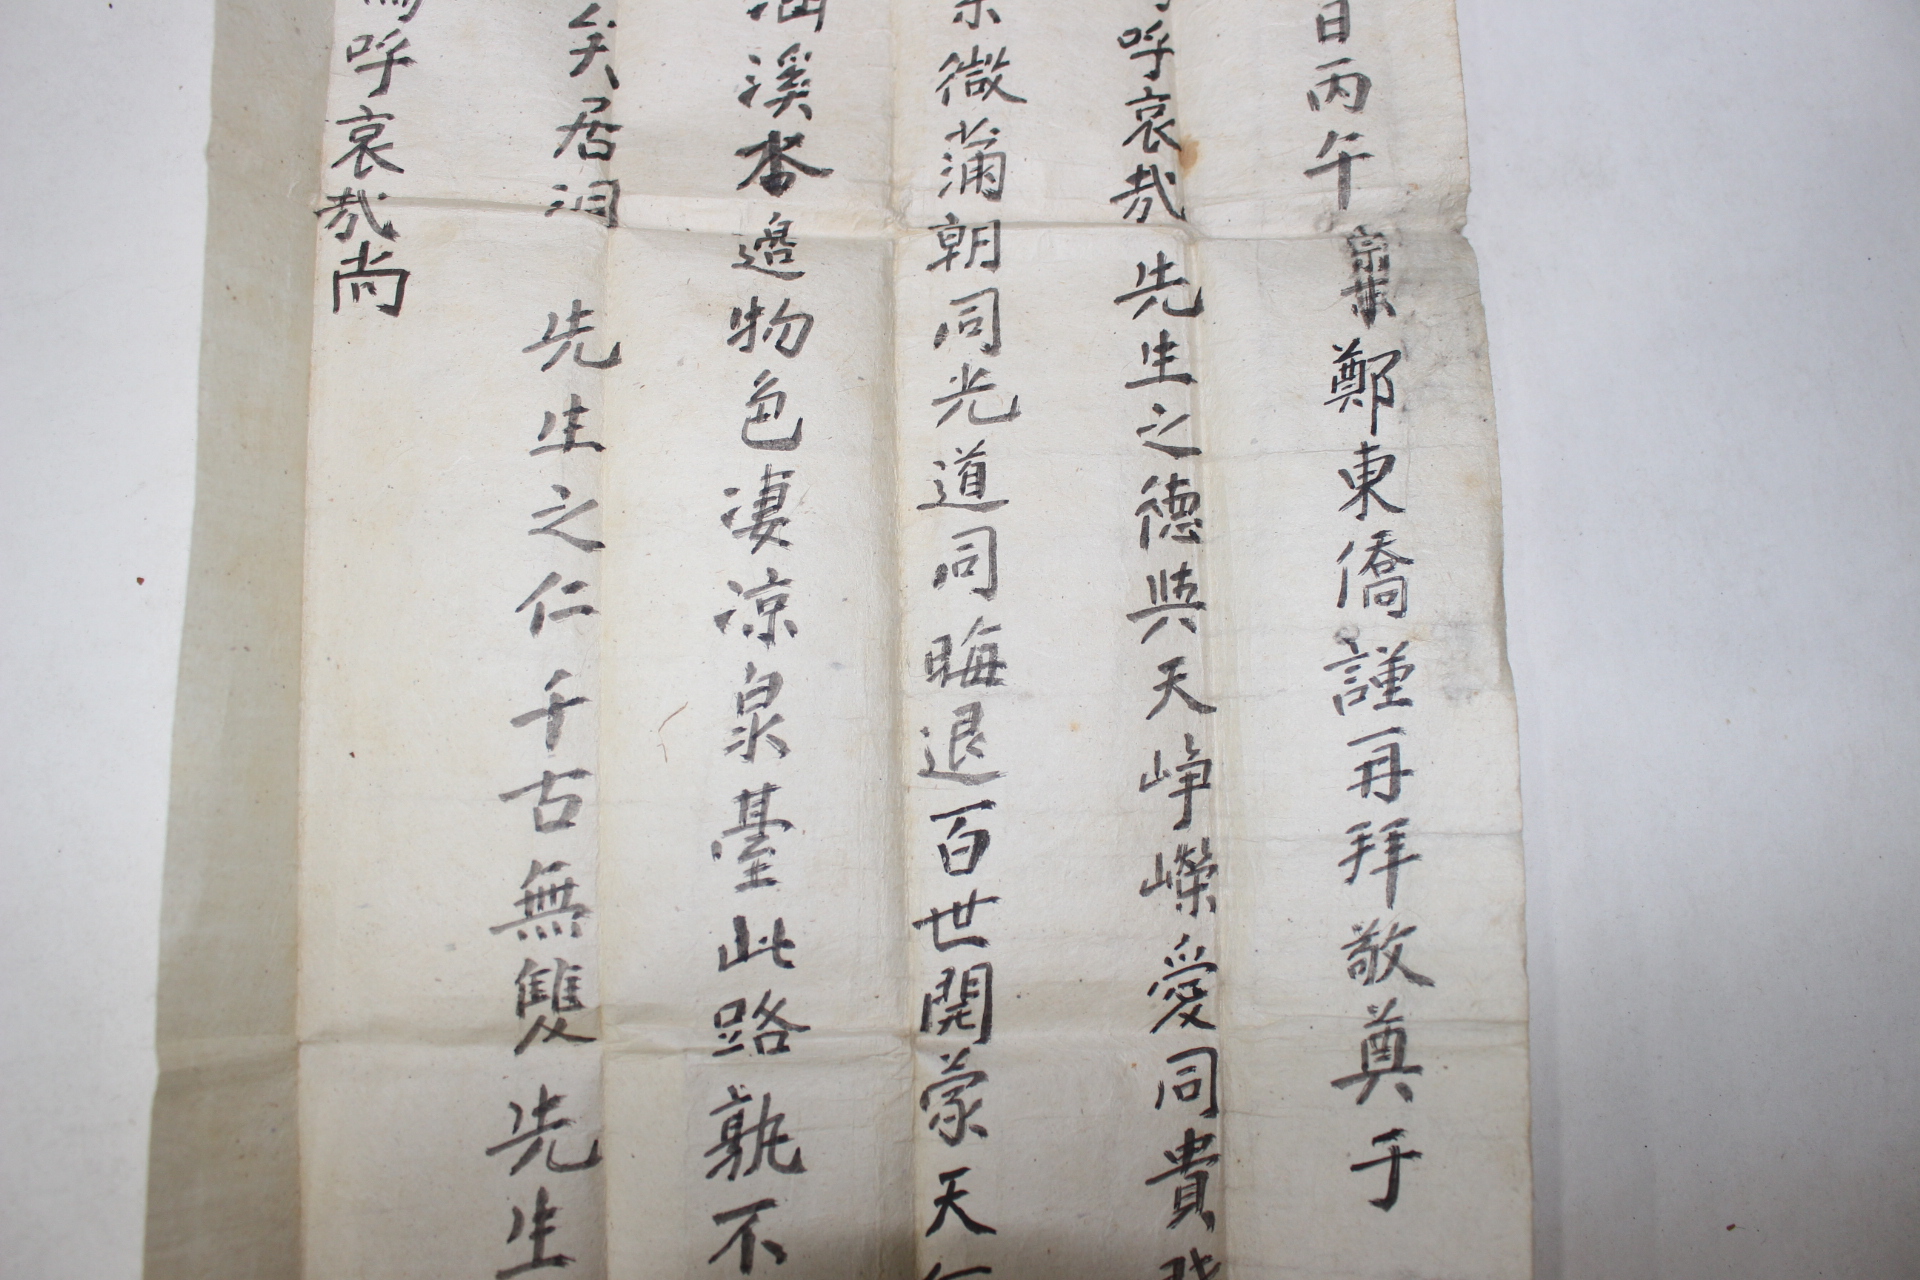 日丙午 鄭東僑謹再拜敬奠于
呼哀哉 先生之德與天崢嶸愛同貴
微蒲朝同光道同晦退百世開蒙天
溪 邊物色凄凉泉臺此路孰不
矣居 先生之仁千古無雙先生
呼哀哉尚